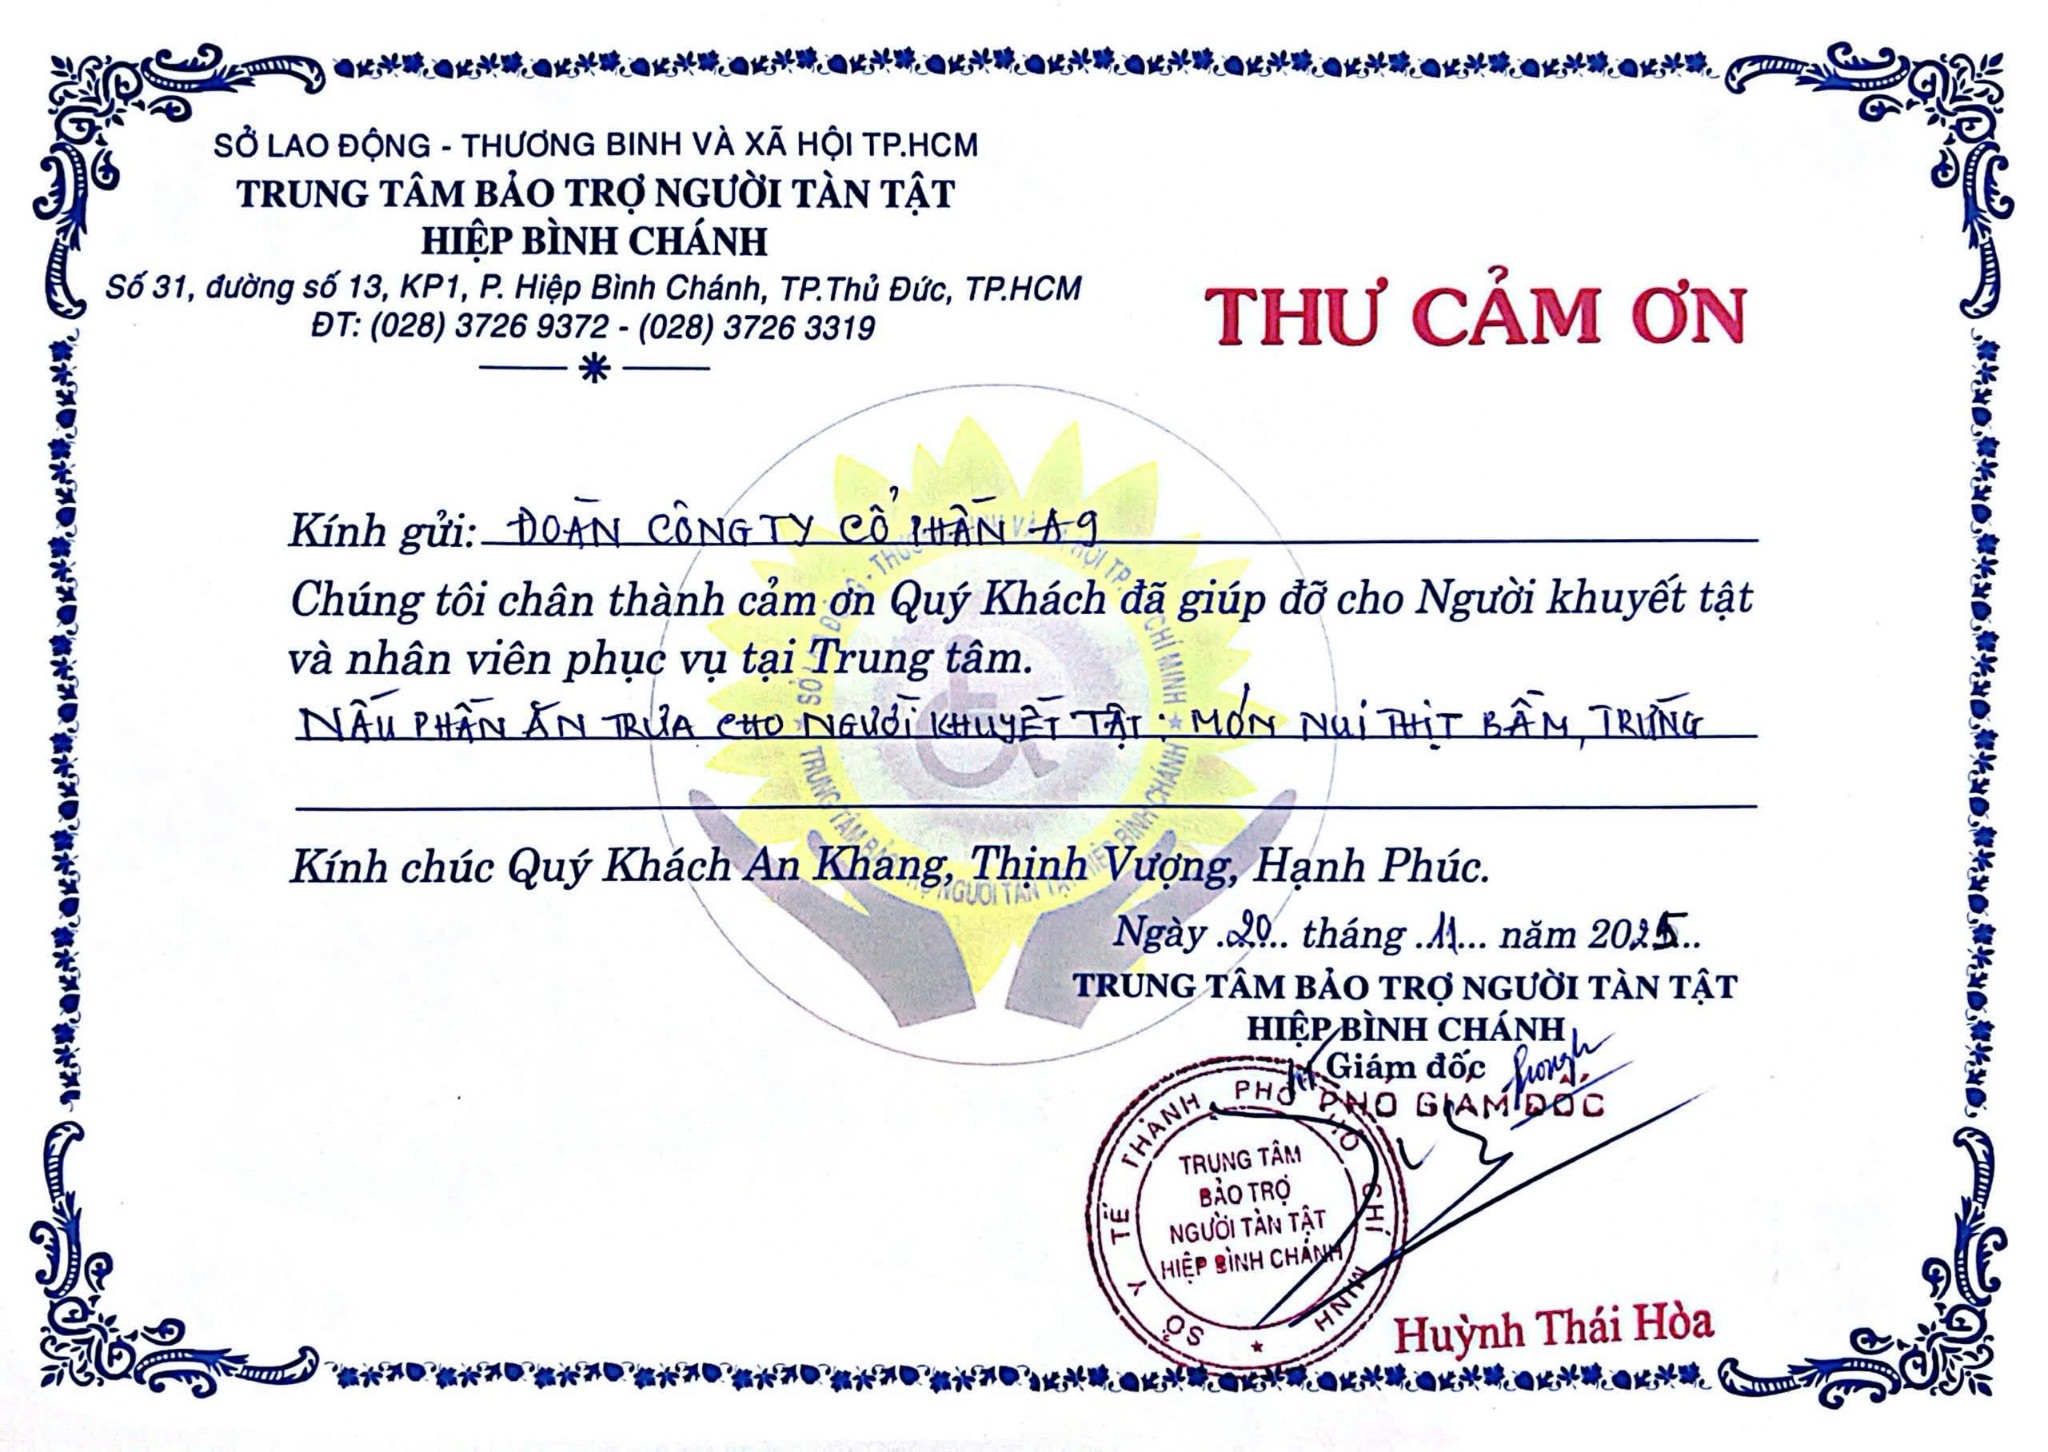 SỞ LAO ĐỘNG - THƯƠNG BINH VÀ XÃ HỘI TP.HCM
TRUNG TÂM BẢO TRỢ NGƯỜI TÀN TẬT
HIỆP BÌNH CHÁNH
Số 31, đường số 13, KP1, P. Hiệp Bình Chánh, TP.Thủ Đức, TP.HCM
ĐT: (028) 3726 9372 - (028) 3726 3319
THƯ CẢM ƠN
Kính gửi: ĐOÀN CÔNG TY CỔ PHẦN A9
Chúng tôi chân thành cảm ơn Quý Khách đã giúp đỡ cho Người khuyết tật
và nhân viên phục vụ tại Trung tâm.
NẤU PHẦN ĂN TRƯA CHO NGƯỜI KHUYẾT TẬT: MÓN NUI THỊT BẰM, TRỨNG
Kính chúc Quý Khách An Khang, Thịnh Vượng, Hạnh Phúc.
Ngày .20.. tháng .11... năm 2025..
TRUNG TÂM BẢO TRỢ NGƯỜI TÀN TẬT
HIỆP BÌNH CHÁNH
Giám đốc
PHÓ GIÁM ĐỐC
SỞ Y TẾ THÀNH PHỐ HỒ CHÍ MINH
TRUNG TÂM
BẢO TRỢ
NGƯỜI TÀN TẬT
HIỆP BÌNH CHÁNH
Huỳnh Thái Hòa